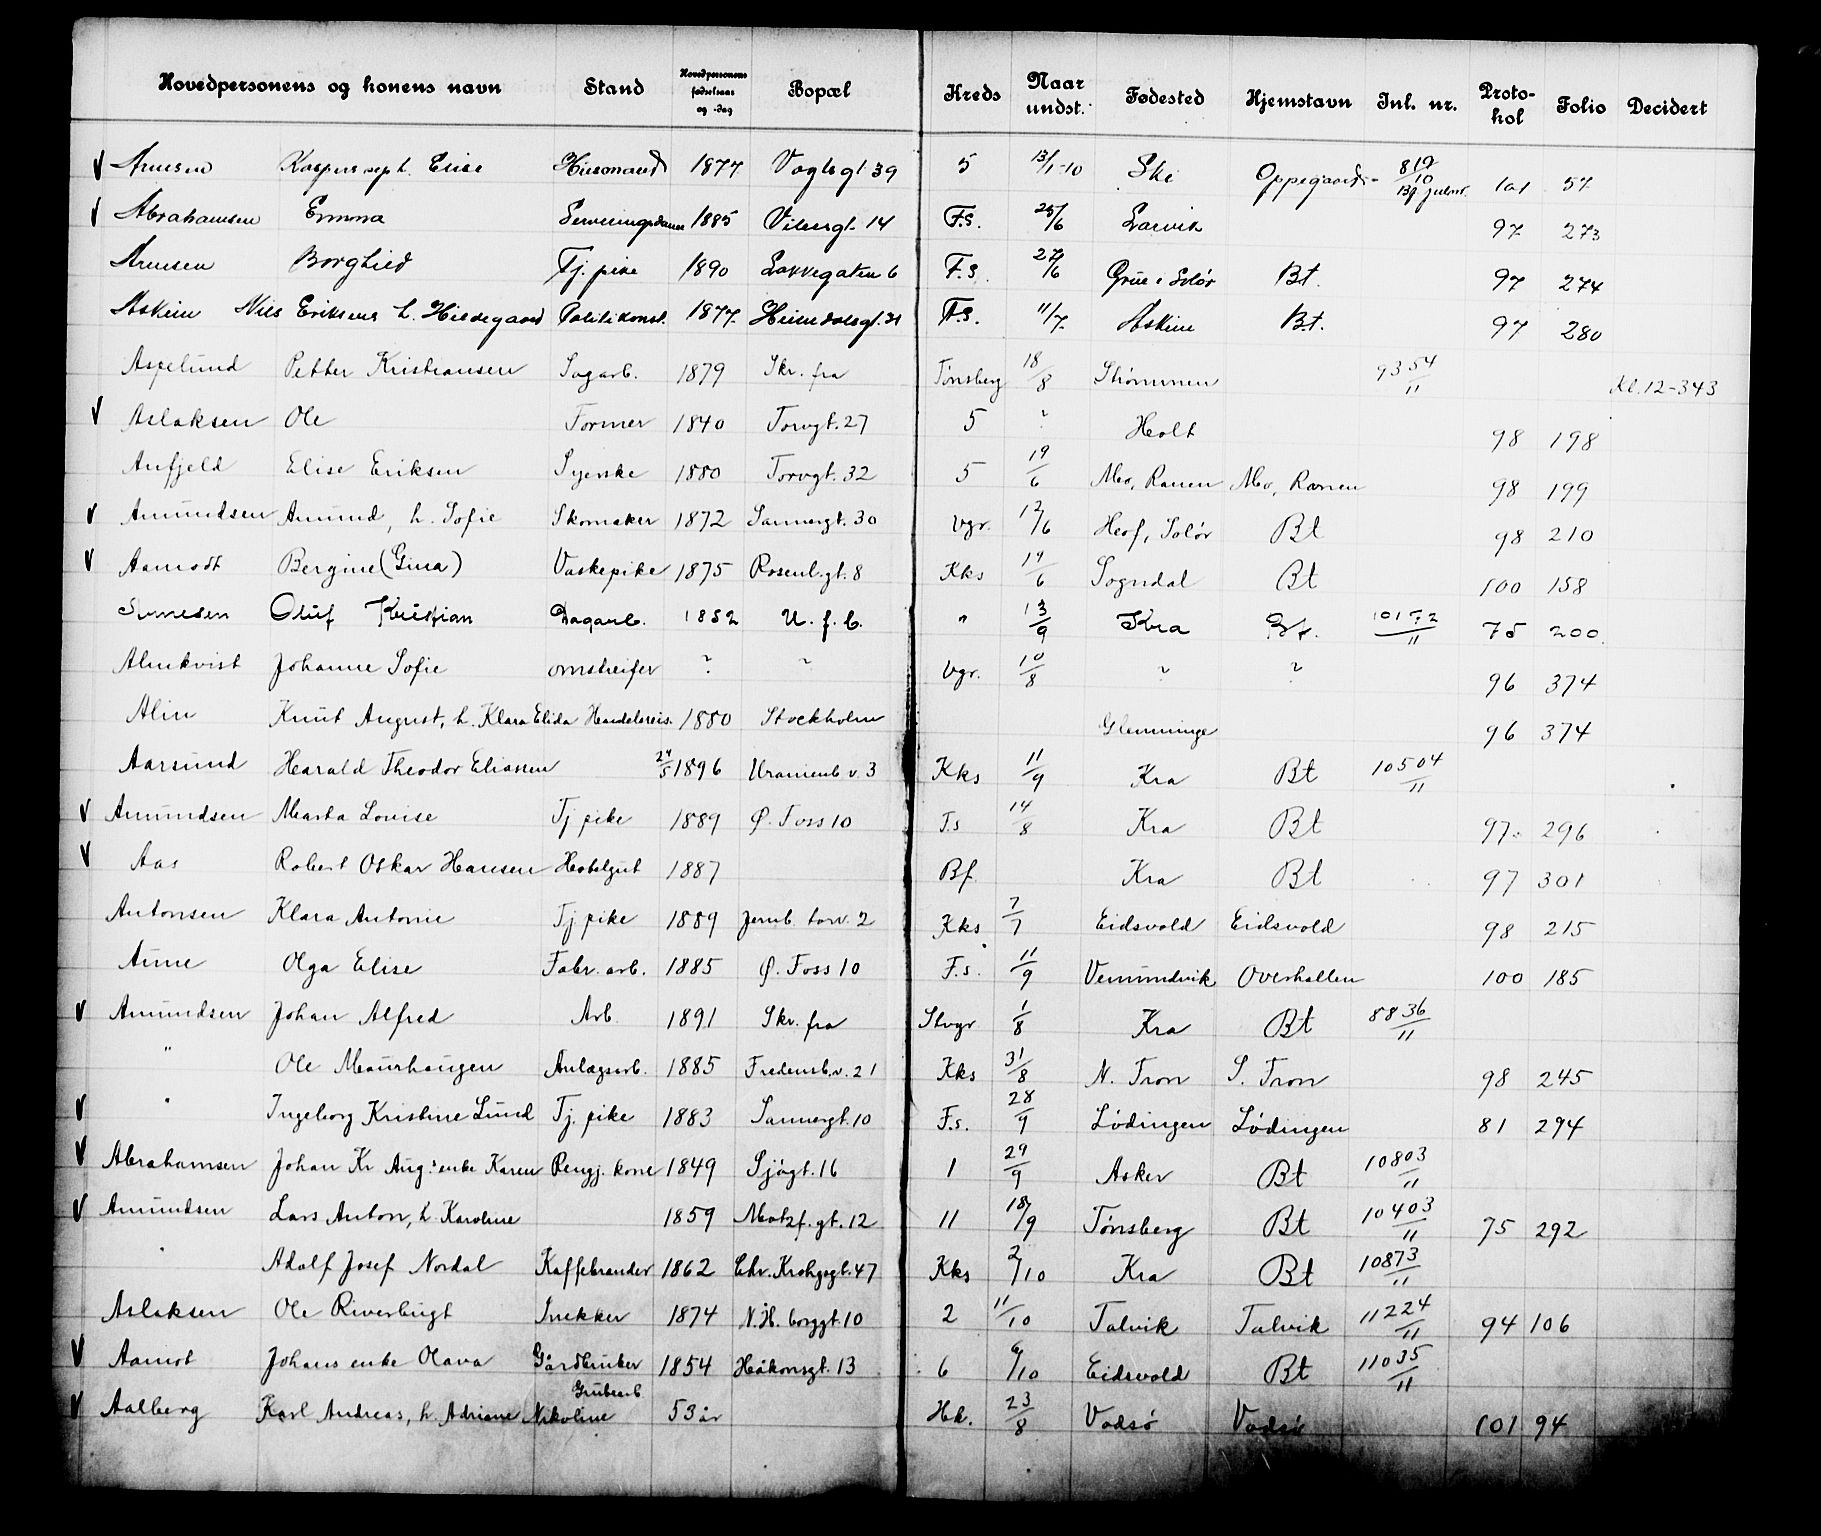 Hovedpersonens og konens navn Stand Hovedpersonens fødselsaar og -dag Bopæl Kreds Naar undst. Fødested Hjemstavn Inl. nr. Proto-kol Folio Decidert
V Arnesen h. Elise 1877 Vogtsgt 39 5 13/1-10 Ski Oppegaard 819/10 101 57
V Abrahamsen Emma Serveringsdame 1885 Vibesgt. 14 F.S. 25/6 Larvik 97 273
Arnesen Borghild Tj. pike 1890 Lakkegaten 6 F.S. 27/6 Grue i Solør Bt. 97 274
Askim Nils Eriksens h. Hildegaard Politikonst. 1877 Heimdalsgt. 31 F.S. 11/7 Askim Bt. 97 280
Aspelund Petter Kristiansen Sagarb. 1879 Skr. fra Tønsberg 18/8 Strømmen 9354/11 Kl. 12-343
V Aslaksen Ole Former 1840 Torvgt. 27 5 ? Holt 98 198
Aufjeld Elise Eriksen Syerske 1880 Torvgt. 32 5 19/6 Mo, Ranen Mo, Ranen 98 199
V Amundsen Amund, h. Sofie Skomaker 1872 Sannergt. 30 Vgr. 12/6 Hof, Solør Bt 98 210
V Aamodt Bergine (Gina) Vaskepike 1875 Rosenb.gt. 8 Kks 14/6 Sogndal Bt 100 158
Oluf Kristian Dagarb. 1852 U. f. b. " 13/9 Kra Bt. 10172/11 75 200
Almkvist Johanne Sofie omstreifer ? ? Vgr. 10/8 ? ? 96 374
Alin Knut August, h. Klara Elida Handelsreis. 1880 Stockholm Glemminge 96 374
Aarsund Harald Theodor Eliassen 24/5 1896 Uranienb. v. 3 Kks 11/9 Kra Bt 10504/11
V Amundsen Marta Lovise Tj pike 1889 Ø. Foss 10 F.s 14/8 Kra Bt 97 296
V Aas Robert Oskar Hansen Hotelgut 1887 Bf. Kra Bt 97 301
Antonsen Klara Antonie Tj. pike 1889 Jernb. torv. 2 Kks 7/7 Eidsvold Eidsvold 98 215
Aune Olga Elise Fabr. arb. 1885 Ø. Foss 10 F.s. 11/9 Vemundvik Overhallen 100 185
V Amundsen Johan Alfred Arb. 1891 Skr. fra Stvgr 1/8 Kra Bt 8836/11
" Ole Maurhaugen Anlægsarb. 1885 Fredensb.v. 21 Kks 31/8 N. Tron S. Tron 98 245
V " Ingeborg Kristine Lund Tj. pike 1883 Sannergt. 10 F.s. 28/9 Lødingen Lødingen 81 294
V Abrahamsen Johan Kr Aug:s enke Karen Rengj. kone 1849 Sjøgt. 16 1 29/9 Asker Bt 10803/11
V Amundsen Lars Anton, h. Karoline 1859 Motzf. gt. 12 11 18/9 Tønsberg Bt 10403/11 75 292
" Adolf Josef Nordal Kaffebrænder 1862 Chr. Krohgsgt. 47 Kks 2/10 Kra Bt 10873/11
Aslaksen Ole Riverbugt Snekker 1874 N. H. borggt. 10 2 11/10 Talvik Talvik 11224/11 94 106
V Aamot Johans enke Olava Gårdbruker 1854 Håkonsgt. 13 6 6/10 Eidsvold Bt 11035/11
V Aalberg Karl Andreas, h. Adriane Nikoline Grubearb 53 år Hk. 23/8 Vadsø Vadsø 101 94